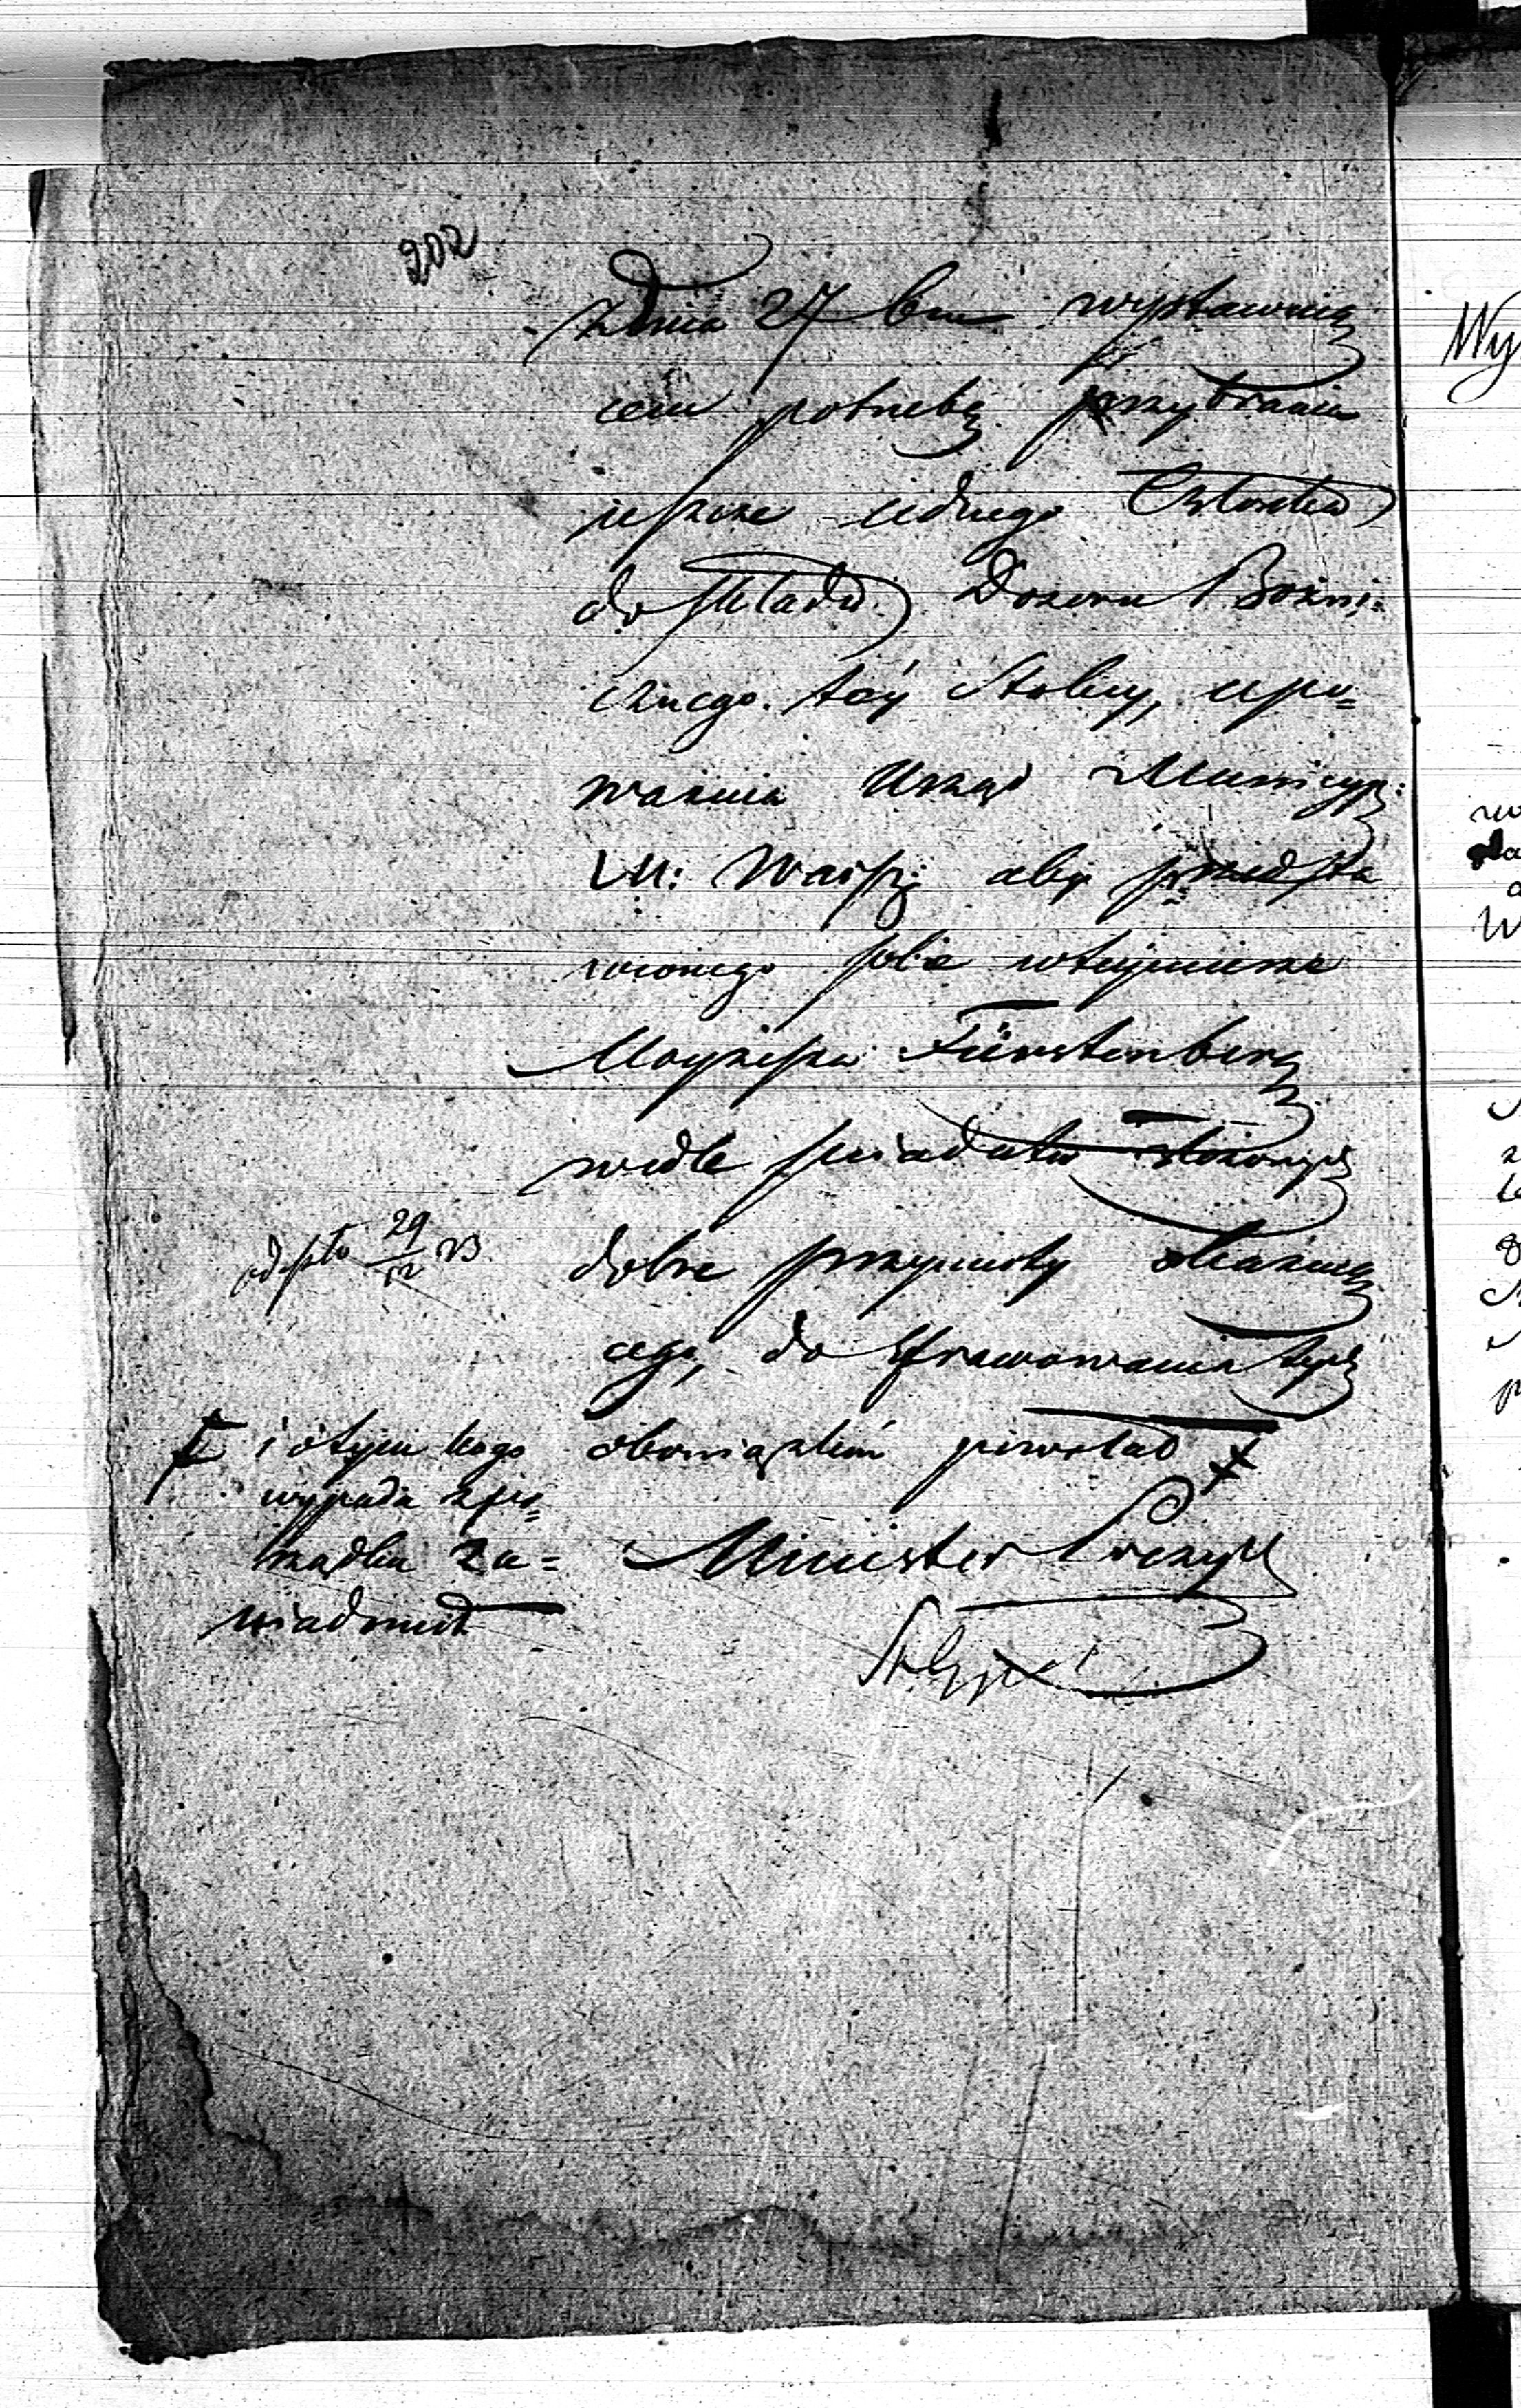 202
z dnia 27 bm wystawuią
cem potrzebę przybrania
ieszcze iednego Członka
do składu Dozoru Bożni=
cznego tey Stolicy, upo=
ważnia Urząd Municyp:
M: Warszy aby przedsta
wionego sobie
Moyżesza Fürstenberg
wedle świadectw złożonych
dobre przymioty okazuią
cego, do sprawowania tych
obowiązków powołał ǂ
Minister Prezyd
odesłto 29/12 23
ǂ i o tym kogo
wypada z po=
rządku za=
wiadomił